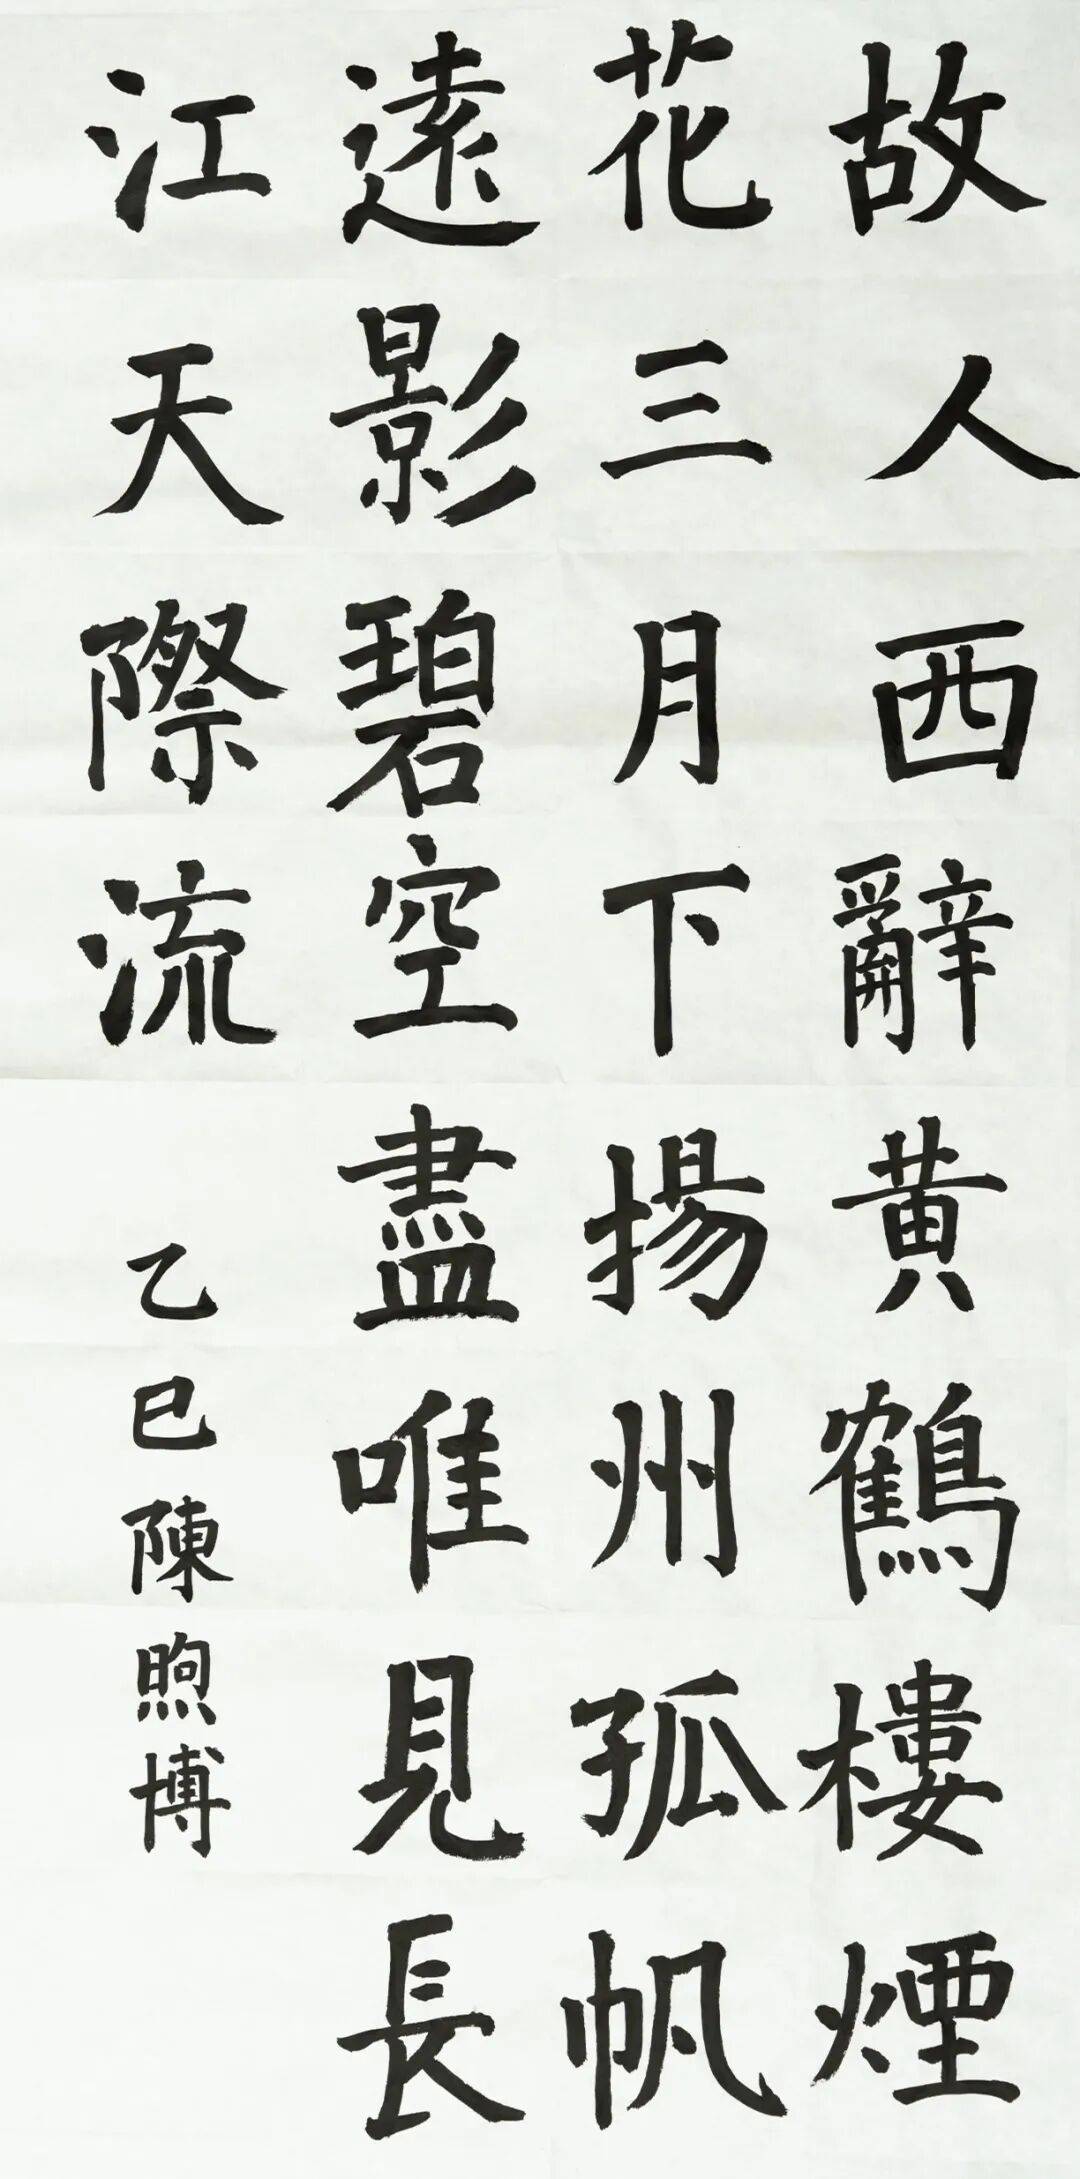 故人西辭黄鶴樓煙
花三月下揚州孤帆
遠影碧空盡唯見長
江天際流
乙巳陳煦博